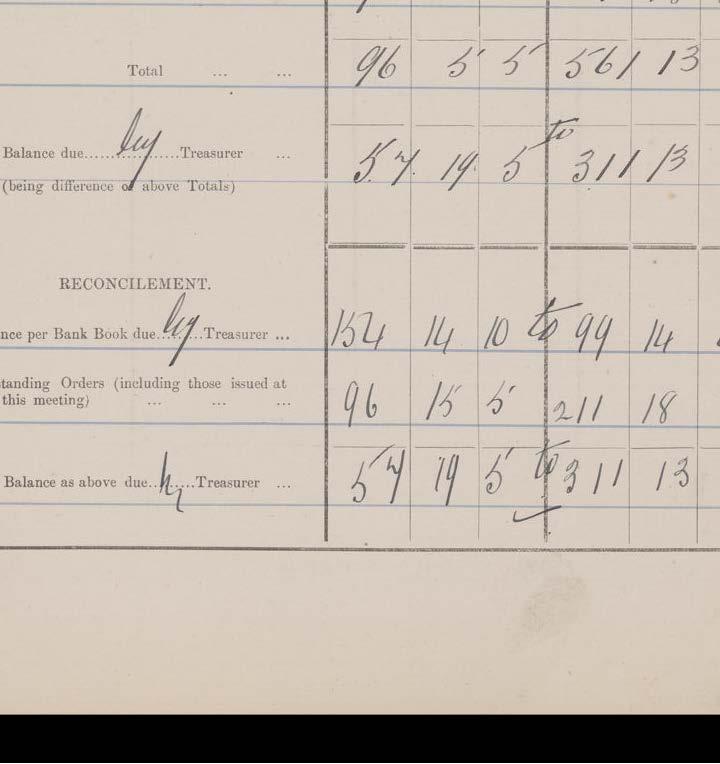 Total ... ... 96 5 5 561 13
Balance due......by......Treasurer ... 57 19 5 to 311 13
(being difference of above Totals)
RECONCILEMENT.
nce per Bank Book due...by...Treasurer ... 154 14 10 to 99 14
tanding Orders (including those issued at
this meeting) ... ... ... 96 15 5 211 18
Balance as above due..by.....Treasurer ... 57 19 5 to 311 13